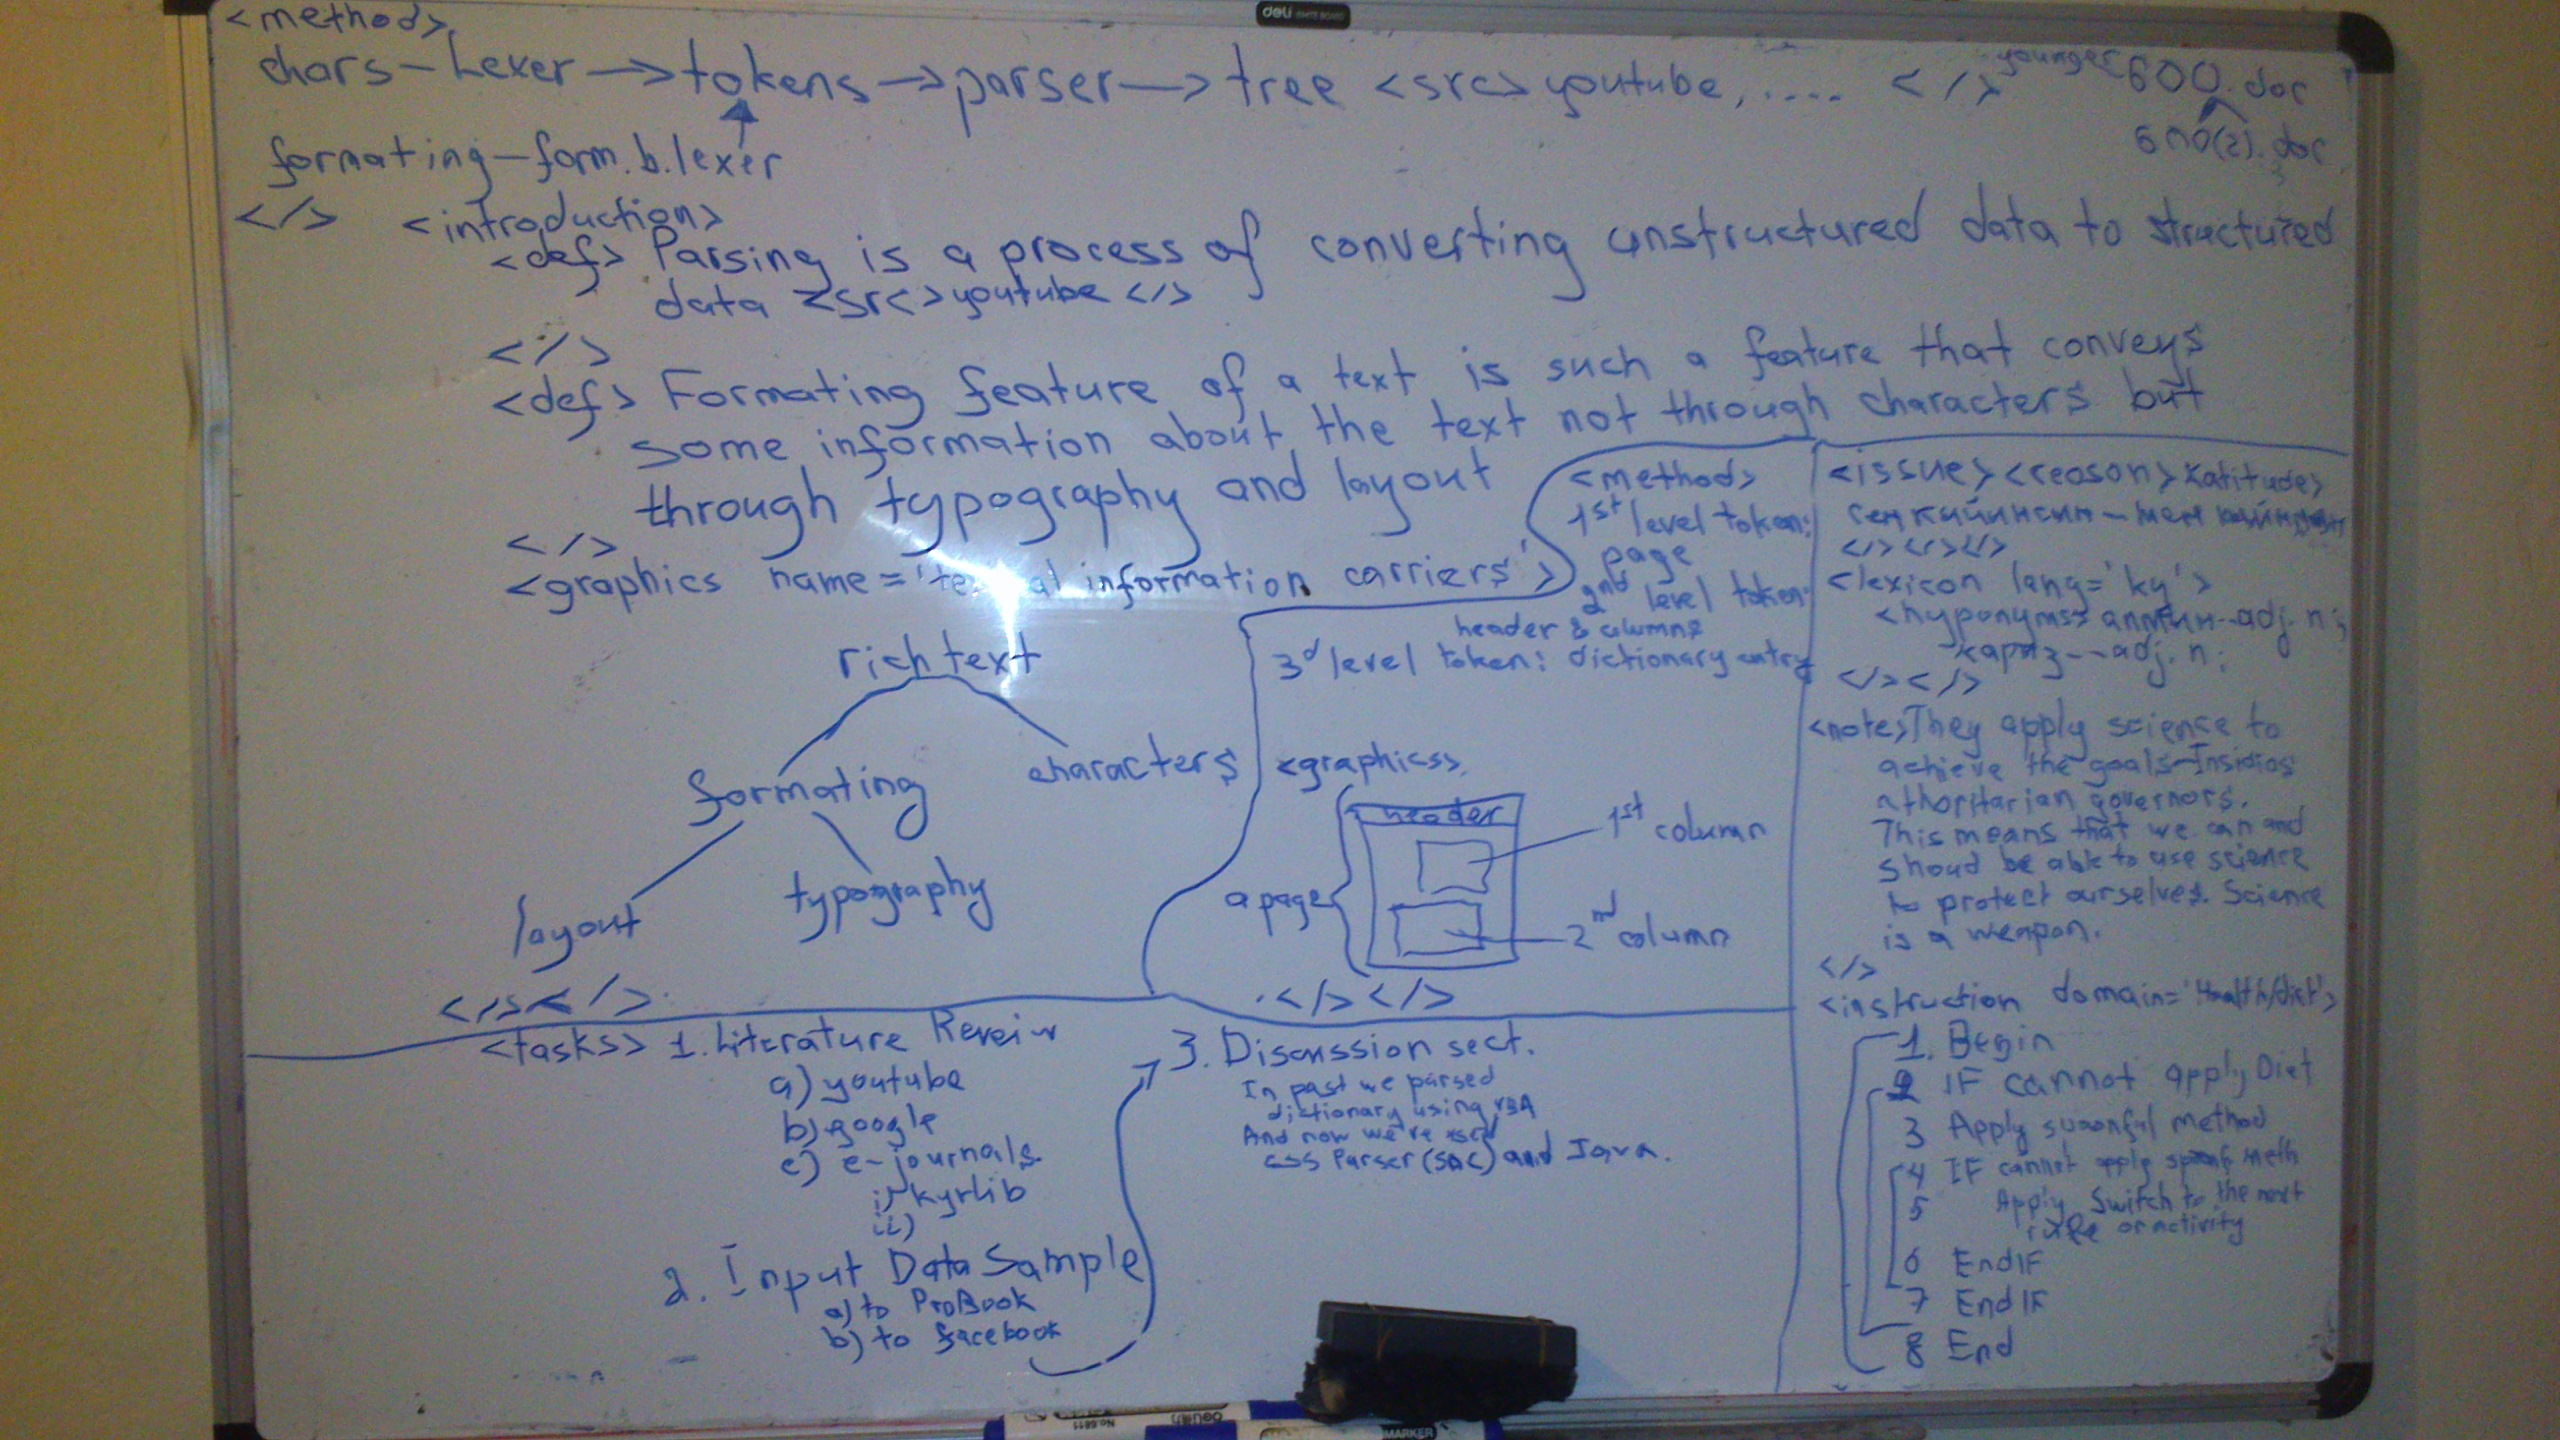 deli WHITE BOARD
<method>
chars – Lexer → tokens → parser → tree <src> youtube, ..... </>
younger 600.doc
600(2).doc
formating – form.b.lexer
</> <introduction>
<def> Parsing is a process of converting unstructured data to structured
data <src> youtube </>
</>
<def> Formating feature of a text is such a feature that conveys
some information about the text not through characters but
through typography and layout
</>
<graphics name = ' information carriers'>
rich text
formating
characters
layout
typography
</> </>
<method>
1st level token:
page
2nd level token:
header & columns
3d level token: dictionary entry
<graphics>
header
1st column
a page
2nd column
</> </>
<issue> <reason> <atitude>
сен кийинсин – мен
</> </> </>
<lexicon lang='ky'>
<hyponyms> алтын--adj. n;
--adj. n;
</> </>
<note> They apply science to
achieve the goals-Insidios
athoritarian governors.
This means that we can and
shoud be able to use science
to protect ourselves. Science
is a weapon.
</>
<instruction domain='Health/diet'>
1. Begin
2 IF cannot apply Diet
3 Apply method
4 IF cannot apply meth
5 Apply Switch to the next
or activity
6 EndIF
7 EndIF
8 End
<tasks> 1. Literature Reveiw
a) youtube
b) google
c) e-journals
i) kyrlib
ii)
2. Input Data Sample
a) to ProBook
b) to facebook
3. Discussion sect.
In past we parsed
dictionary using VBA
And now we're
CSS Parser (SAC) and Java.
No.6811
MARKER